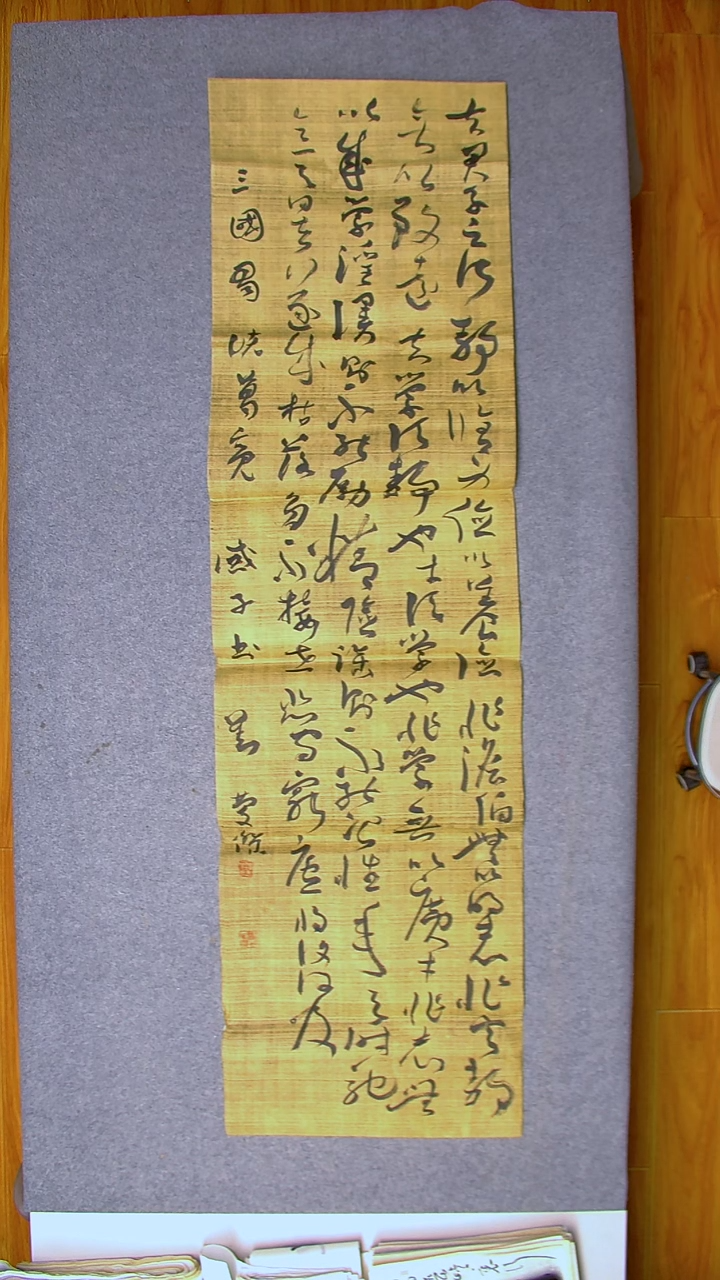 夫君子之行静以修身俭以养德非澹泊無以明志非宁静
無以致远夫学须静也才须学也非学無以廣才非志無
以成学淫慢则不能励精险躁则不能治性年与时驰
意与日去遂成枯落多不接世悲守穷庐将复何及
三國蜀诸葛亮诫子书